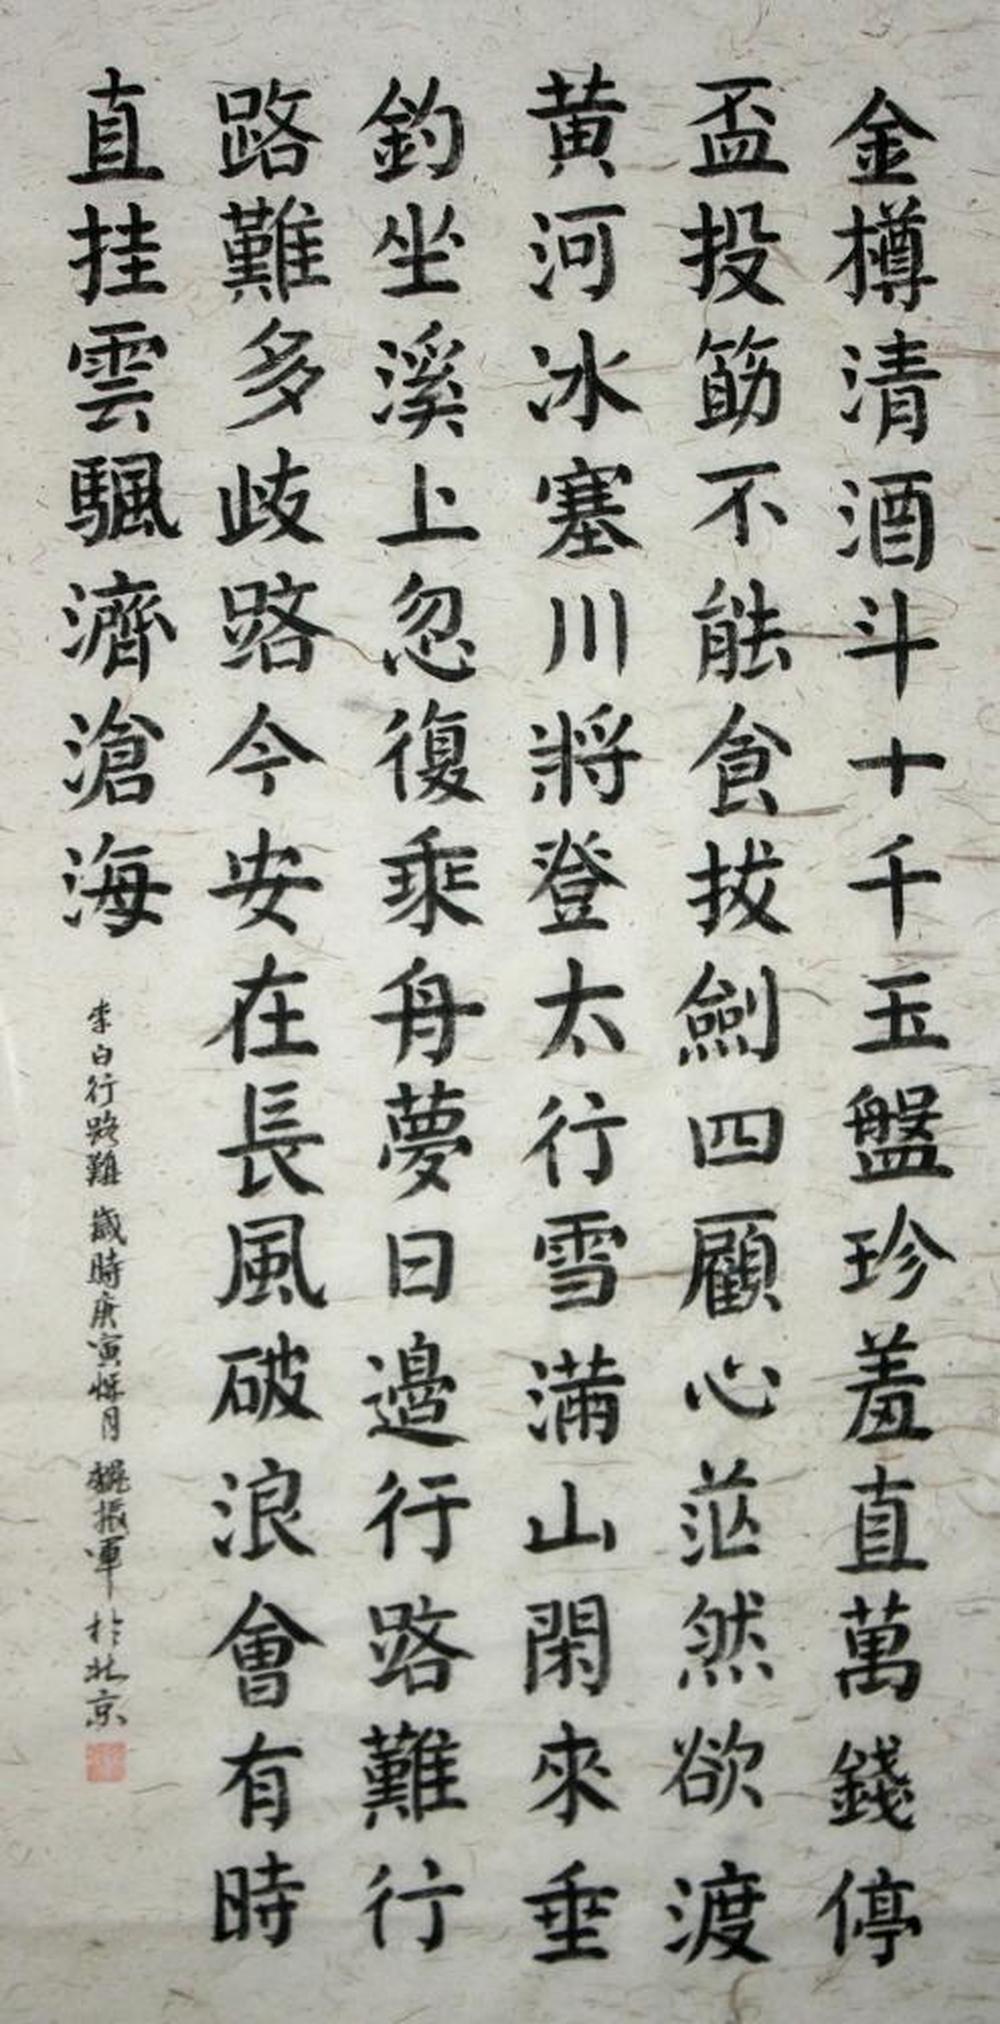 金樽清酒斗十千玉盤珍羞直萬錢停
盃投筯不能食拔劍四顧心茫然欲渡
黄河冰塞川將登太行雪滿山閑來垂
釣坐溪上忽復乘舟夢日邊行路難行
路難多歧路今安在長風破浪會有時
直挂雲颿濟滄海
李白行路難 歲時庚寅月 振軍 於北京